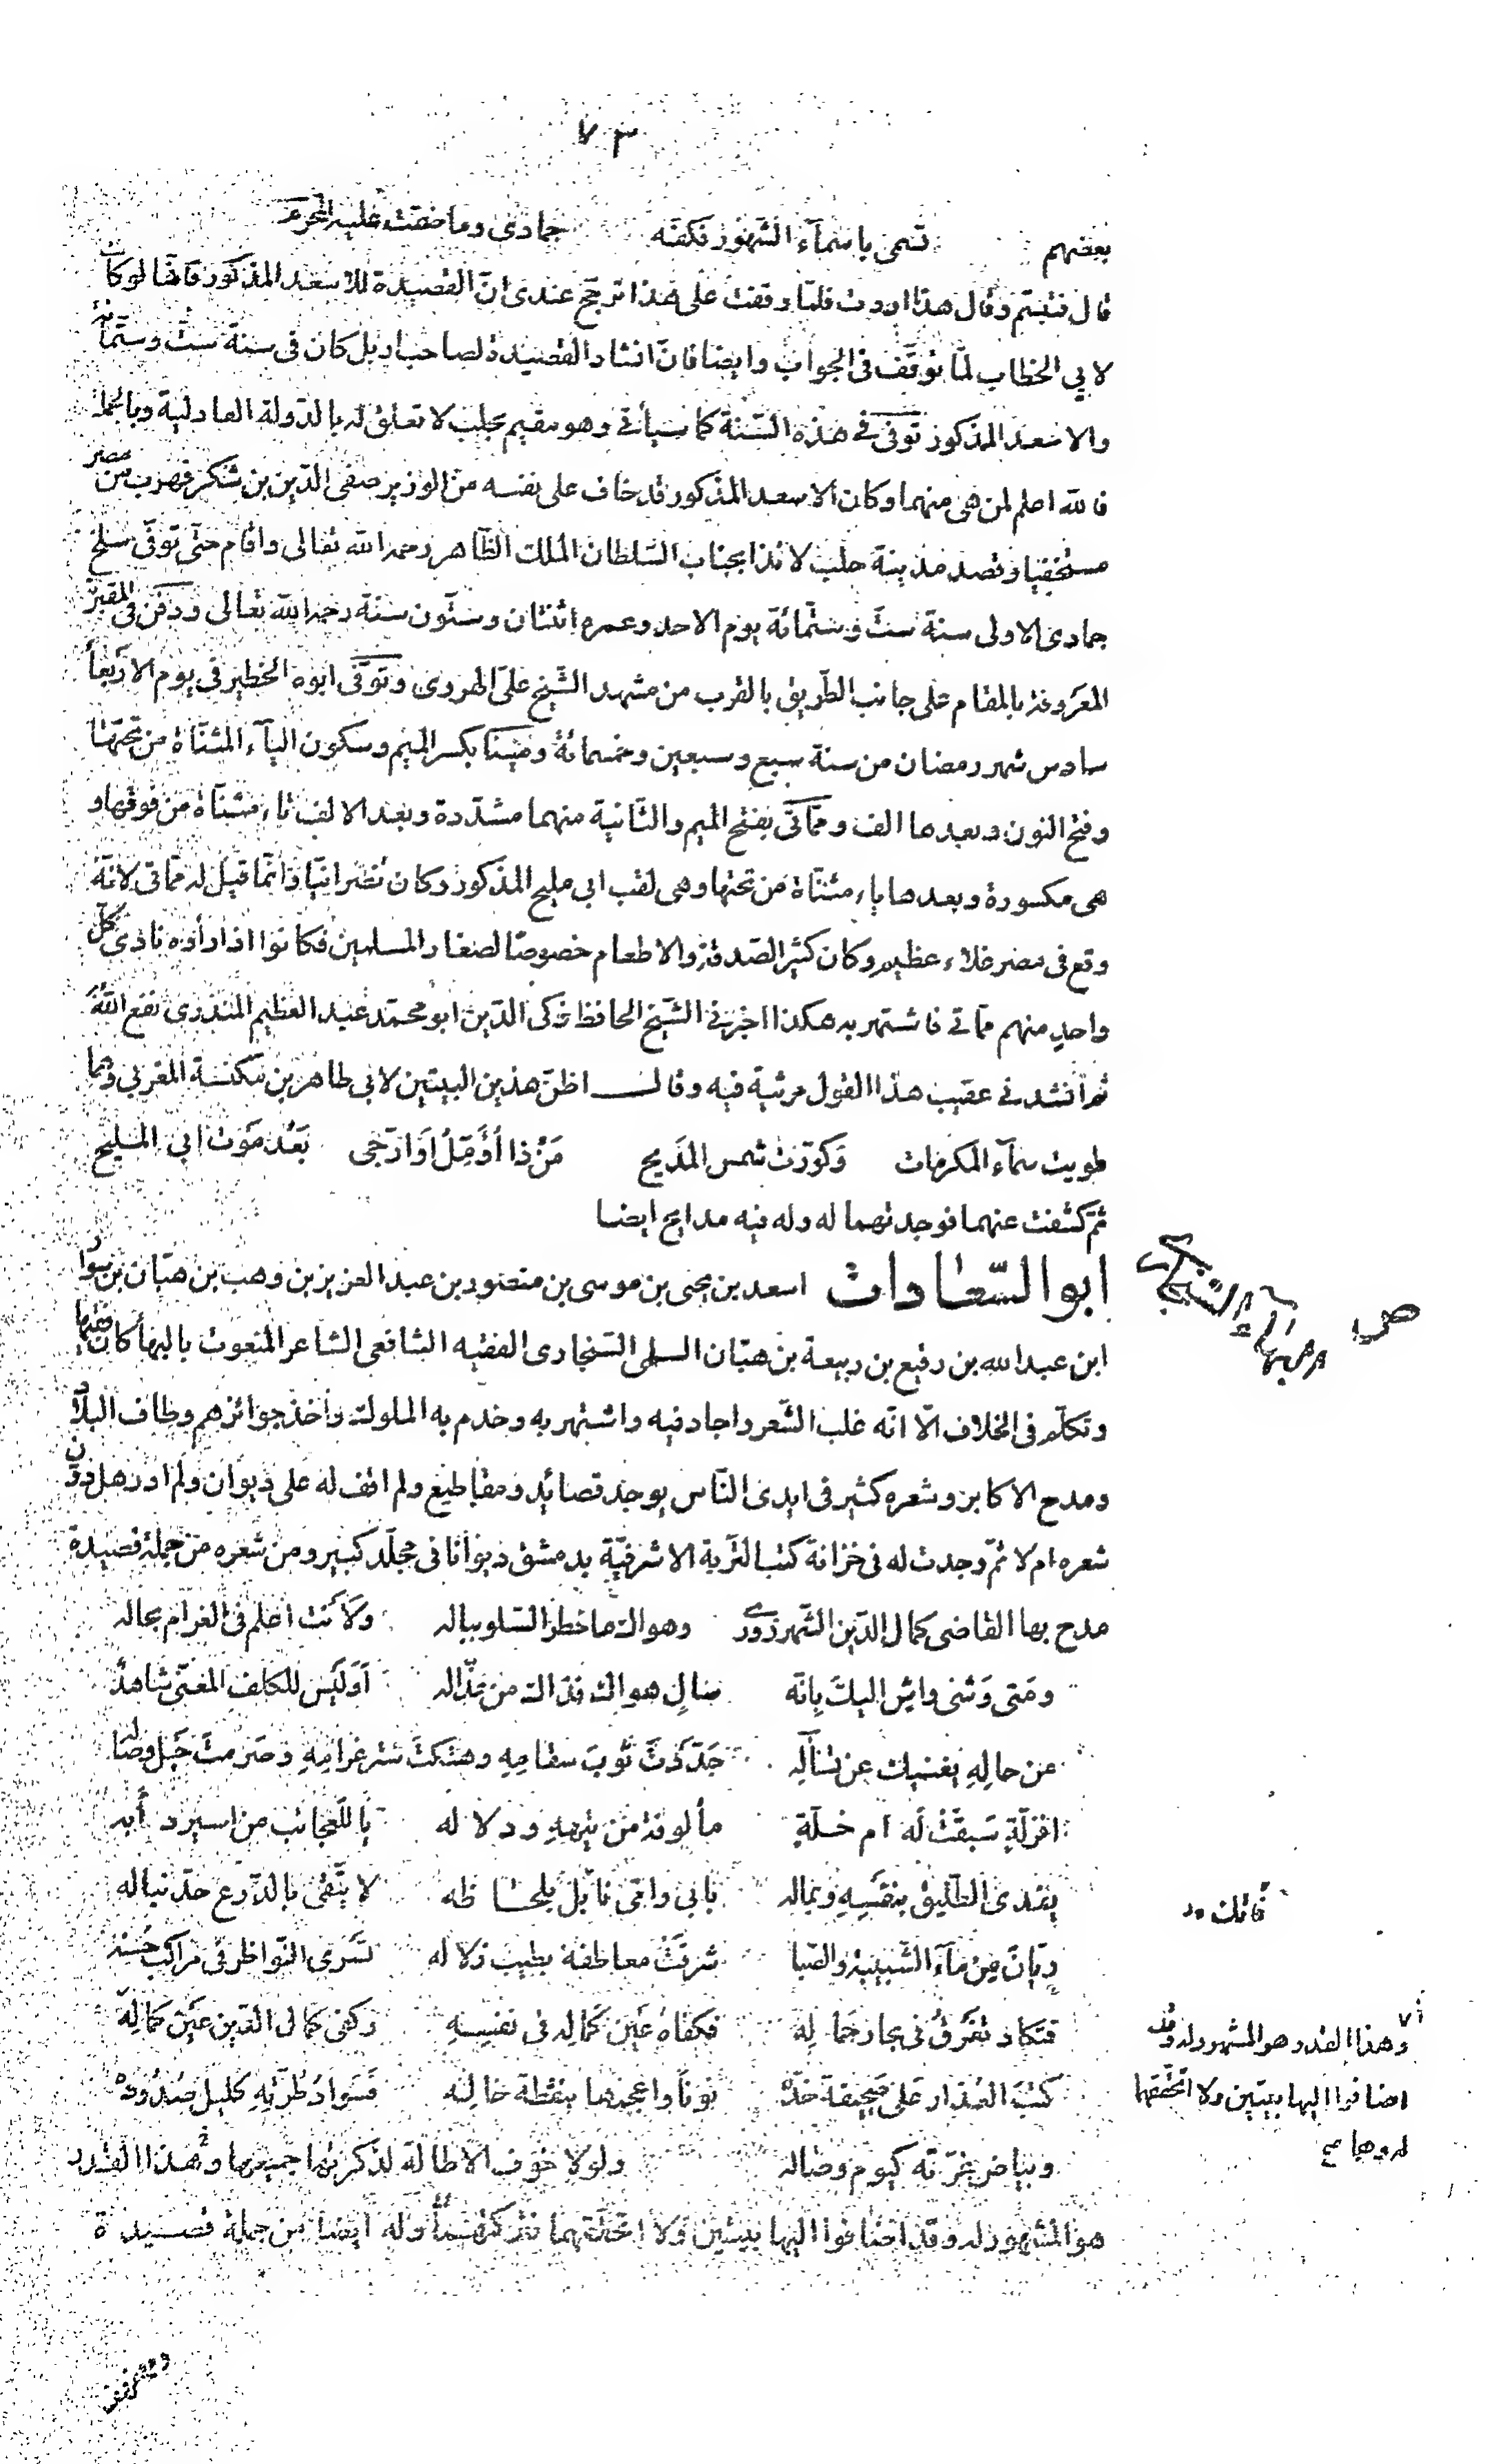 ٧٣
بعضهم تسمى باسماء الشهور فكفه جمادى وما ضمّت عليه المحرّم
قال فتبسّم وقال هذا اردت فلمّا وقفت على هذا ترجّح عندى انّ القصيدة للاسعد المذكور فانّها لو كانت
لابي الخطاب لمّا توقّف فى الجواب وايضا فانّ انشاد القصيدة لصاحب اربل كان فى سنة ستّ وستّمائة
والاسعد المذكور توفى فى هذه السّنة كما سيأتى وهو مقيم بحلب لا تعلق له بالدّولة العادلية وبالجملة
فالله اعلم لمن هى منهما وكان الاسعد المذكور قد خاف على نفسه من الوزير صفى الدّين بن شكر فهرب من مصر
مستخفيا وقصد مدينة حلب لائذا بجناب السّلطان الملك الظّاهر رحمه الله تعالى واقام حتّى توفّى سلخ
جمادى الاولى سنة ستّ وستّمائة يوم الاحد وعمره اثنتان وستّون سنة رحمه الله تعالى ودفن فى المقبرة
المعروفة بالمقام على جانب الطّريق بالقرب من مشهد الشّيخ علىّ الهروى وتوفّى ابوه الخطير فى يوم الاربعاء
سادس شهر رمضان من سنة سبع وسبعين وخمسمائة ومينا بكسر الميم وسكون الياء المثنّاة من تحتها
وفتح النون وبعدها الف وممّاتى بفتح الميم والثّانية منهما مشدّدة وبعد الالف تاء مثنّاة من فوقها و
هى مكسورة وبعدها ياء مثنّاة من تحتها وهى لقب ابى مليح المذكور وكان نصرانيّا وانّما قيل له ممّاتى لانّه
وقع فى مصر غلاء عظيم وكان كثير الصّدقة والاطعام خصوصًا لصغار المسلمين فكانوا اذا رأوه نادى كلّ
واحدٍ منهم ممّاتى فاشتهر به هكذا اخبرنى الشّيخ الحافظ زكى الدّين ابو محمّد عبد العظيم المنذرى نفع الله به
ثم انشدنى عقيب هذا القول مرثية فيه وقال اظنّ هذين البيتين لابى طاهر بن مكنسة المغربى وهما
طويت سمآء المكرمات وَكوّرَت شمس المَديح مَنْ ذا أُؤَمّلُ اَوَ ارتجى بَعْد مَوت ابى المليح
ثمّ كشفت عنهما فوجدتهما له وله فيه مدايح ايضا
ابو السّعادات اسعد بن يحيى بن موسى بن منصور بن عبد العزيز بن وهب بن هبّان بن سوار
ابن عبد الله بن رفيع بن ربيعة بن هبّان السلمى السّنجارى الفقيه الشافعى الشاعر المنعوت بالبهاء كان فقيها
وتكلّم فى الخلاف الّا انّه غلب الشّعر واجاد فيه واشتهر به وخدم به الملوك واخذ جوائزهم وطاف البلاد
ومدح الاكابر وشعره كثير فى ايدى النّاس يوجد قصائد ومقاطيع ولم اقف له على ديوان ولم ادر هل دوّن
شعره ام لا ثمّ وجدت له فى خزانة كتب التّربة الاشرفيّة بدمشق ديوانا فى مجلّد كبير ومن شعره من جملة قصيدة
مدح بها القاضى كمال الدّين الشّهرزورى وهواك ما خطر السّلو بباله ولأنت اعلم فى الغرام بحاله
ومَتى وَشى واشٍ اليكَ بانّه سالٍ هواك فذاك من عذّاله أوَلَيس للكلف المعنّى شاهدٌ
من حالِهِ يغنيك عن تسآلِه جَدّدتَ ثوبَ سقامِهِ وهتكتَ ستر غرامِهِ وصرمتَ حبل وصاله
افزلّةٍ سَبقَتْ لَه ام خلّةٍ مألوفة من تيهه ودلاله يا للعجائب من اسير دأبه
يفدى الطّليق بنفسِهِ وبماله بأبى وامّى نابل بلحاظه لا يتّقى بالدّرع حدّ نباله
ريّانَ مِن مآءِ الشّبيبة والصّبا شرقتْ معاطفه بطيب زلاله تسرى النّواظر فى مراكب حسنه
فتكاد تغرقُ فى بحار جماله فكفاهُ عين كماله فى نفسِهِ وكفى كمال الدّين عين كماله
كتبَ العذار على صحيفة خدّه نونًا واعجمها بنقطة خاله فسَوادُ طرّتهِ كليل صدوده
وبياض غرّته كيوم وصاله ولولا خوف الاطالة لذكرتها جميعها وهذا القدر
هو المشهور له وقد اضافوا اليها بيتين ولا اتحقّقهما فتركتهما وله ايضا من جملة قصيدة
ص
بهاء السّنجارى
فاتك
وهذا القدر هو المشهور له وقد
اضافوا اليها بيتين ولا اتحقّقهما
له وهما صح